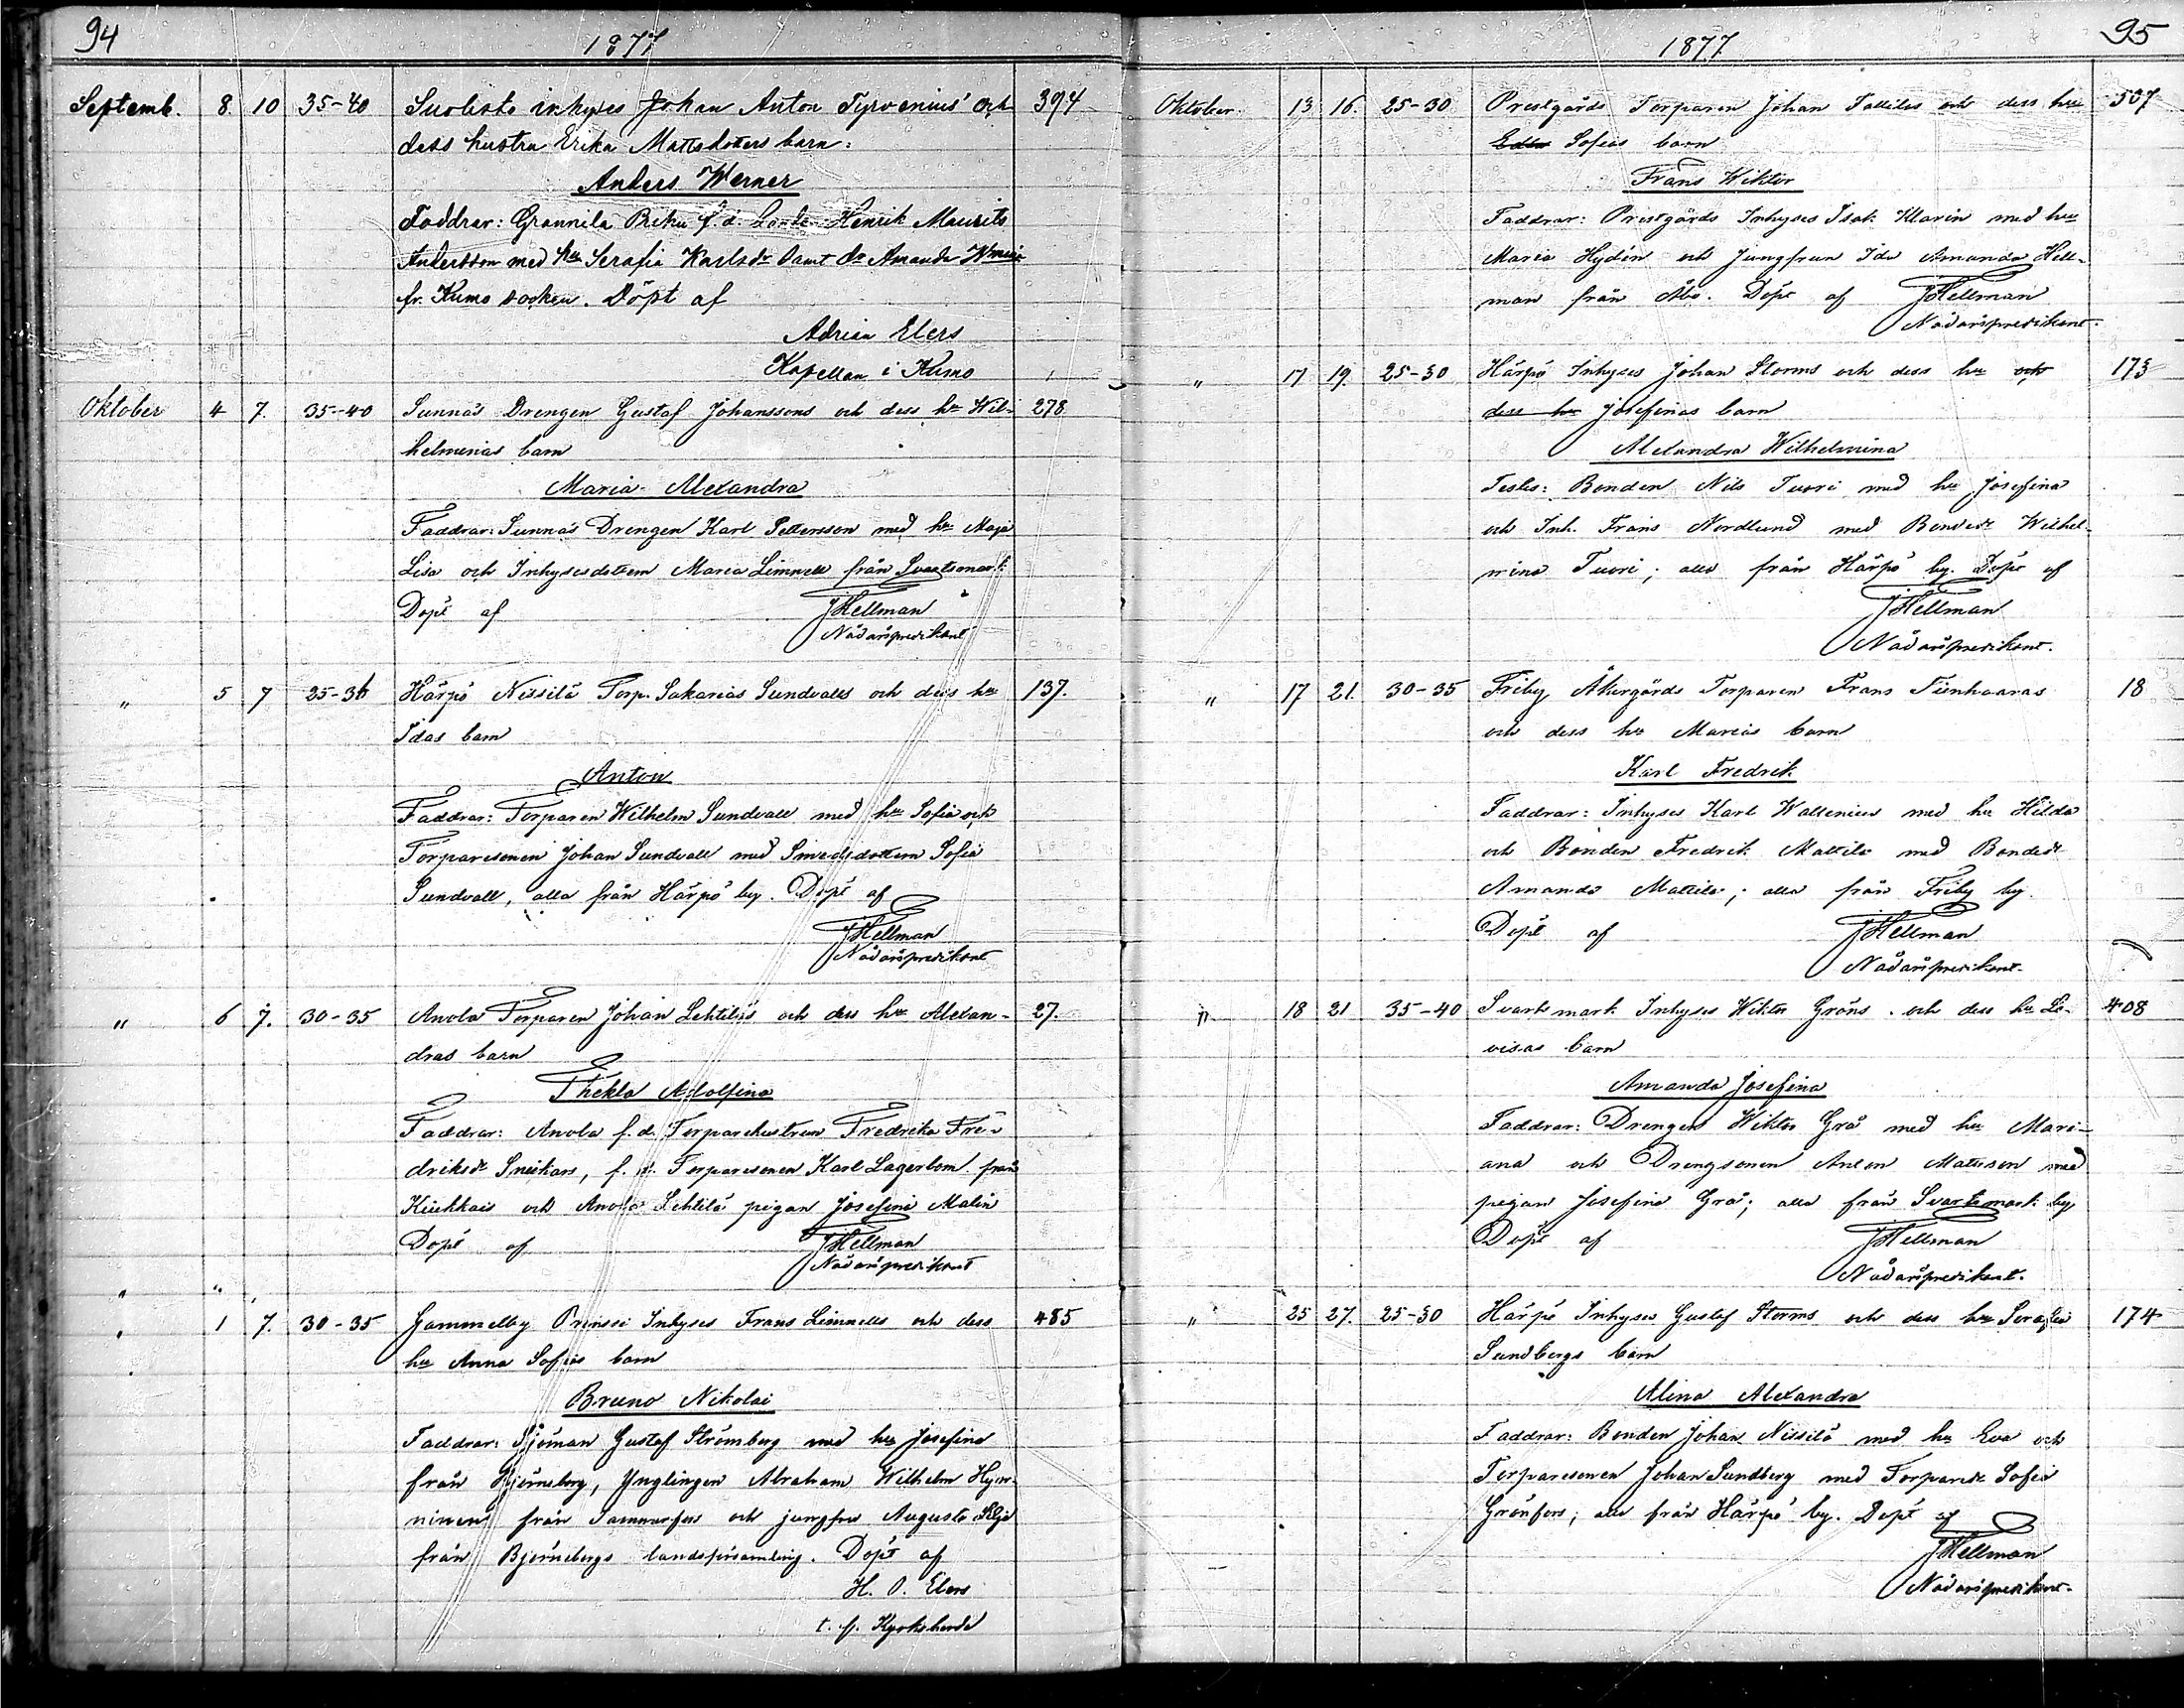 94
1877
Septemb. 8. 10 35-40 Suolisto inhyses Johan Anton Tyrvenius' och 394
dess hustru Erika Mattsdotters barn:
Anders Werner
Faddrar: Grannila f.d. Henrik Maurits
Andersson med hu Serafia Karlsdr samt dr Amanda
fr. Kumo socken. Döpt af
Adrian Elers
Kapellan i Kumo
Oktober 4 7. 35-40 Sunnäs Drengen Gustaf Johanssons och dess hu Wil- 278
helminas barn
Maria Alexandra
Faddrar: Sunnäs Drengen Karl Pettersson med hu Maja
Lisa och Inhysesdottern Maria Limnell från Svartsmark
Döpt af JHellman
Nådårspredikant
" 5 7 25-30 Härpö Nissilä Torp. Sakarias Sundvalls och dess hu 137.
Idas barn
Anton
Faddrar: Torparen Wilhelm Sundvall med hu Sofia och
Torparesonen Johan Sundvall med Smedsdottern Sofia
Sundvall, alla från Härpö by. Döpt af
JHellman
Nådårspredikant
" 6 7. 30-35 Anola Torparen Johan Lehtiläs och dess hu Alexan- 27.
dras barn
Thekla Adolfina
Faddrar: Anola f.d. Torparehustrun Fredrika Fre-
driksdr Snickars, f. d. Torparesonen Karl Lagerbom från
och Anola Lehtilä pigan Josefina Malin
Döpt af JHellman
Nådårspredikant
" 1 7. 30-35 Gammelby Prinssi Inhyses Frans Limnells och dess 485
hu Anna Sofias barn
Bruno Nikolai
Faddrar: Sjöman Gustaf Strömberg med hu Josefina
från Björneborg, Ynglingen Abraham Wilhelm Hyn-
ninens från Tammerfors och jungfru Augusta Silja
från Björneborgs landsförsamling. Döpt af
H. O. Elers
t. f. Kyrkoherde
1877.
95
Oktober 13 16. 25-30 Prestgårds Torparen Johan Tallilas och dess hu 507
Sofias barn
Frans Wiktor
Faddrar: Prestgårds Inhyses Isak Marin med hu
Maria Hydén och Jungfrun Ida Amanda Hell-
man från Åbo. Döpt af JHellman
Nådårspredikant.
" 17 19. 25-30 Härpö Inhyses Johan Storms och dess hu och 173
dess hu Josefinas barn
Alexandra Wilhelmina
Testes: Bonden Nils Tuori med hu Josefina
och Inh. Frans Nordlund med Bondedr Wilhel-
mina Tuori; alla från Härpö by. Döpt af
JHellman
Nådårspredikant.
" 17 21. 30-35 Friby Åkergårds Torparen Frans Tienhaaras 18
och dess hu Marias barn
Karl Fredrik
Faddrar: Inhyses Karl Wallenius med hu Hilda
och Bonden Fredrik Mattila med Bondedr
Amanda Mattila; alla från Friby by.
Döpt af JHellman
Nådårspredikant.
" 18 21 35-40 Svartsmark Inhyses Wiktor Gröns och dess hu Lo- 408
visas barn
Amanda Josefina
Faddrar: Drengen Wiktor Grå med hu Mari-
ana och Drengsonen Anton Mattsson med
pigan Josefina Grå; alla från Svartsmark by
Döpt af JHellman
Nådårspredikant.
" 25 27. 25-30 Härpö Inhyses Gustaf Storms och dess hu Serafia 174
Sundbergs barn
Alina Alexandra
Faddrar: Bonden Johan Nissilä med hu Eva och
Torparesonen Johan Sundberg med Torparedr Sofia
Grönfors; alla från Härpö by. Döpt af
JHellman
Nådårspredikant.